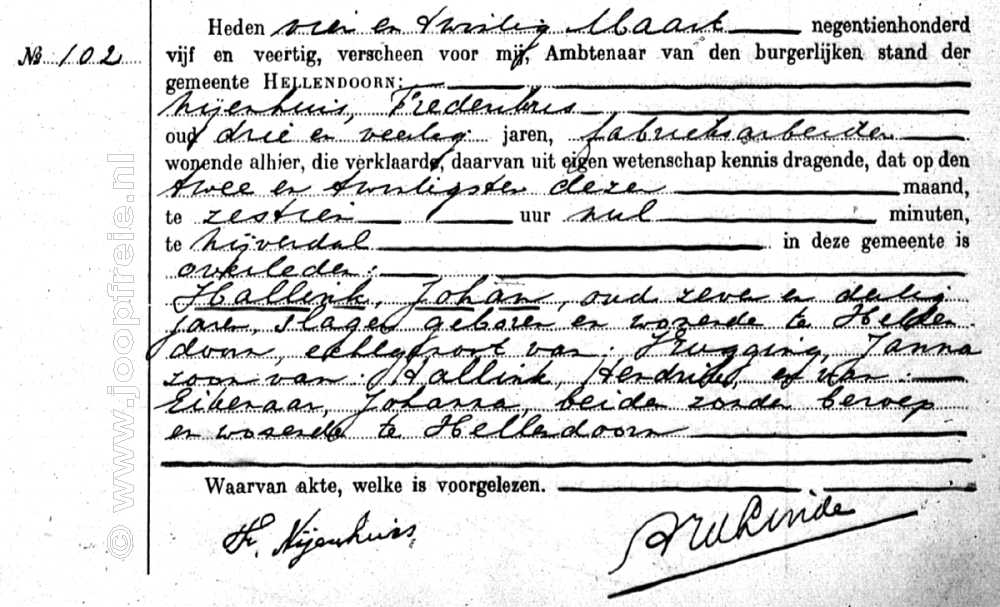 Heden vier en twintig Maart negentienhonderd
№ 102
vijf en veertig, verscheen voor mij, Ambtenaar van den burgerlijken stand der
gemeente HELLENDOORN:
Nijenhuis, Frederikus
oud drie en veertig jaren, fabrieksarbeider
wonende alhier, die verklaarde, daarvan uit eigen wetenschap kennis dragende, dat op den
twee en twintigsten dezer maand,
te zestien uur nul minuten,
te Nijverdal in deze gemeente is
overleden:
Hallink, Johan, oud zeven en dertig
jaren, slager geboren en wonende te Hellen-
doorn, echtgenoot van: Brugging, Janna
zoon van: Hallink, Hendrikus, en van:
Eibenaar, Johanna, beiden zonder beroep
en wonende te Hellendoorn
Waarvan akte, welke is voorgelezen.
Fr. Nijenhuis
© www.joopfreie.nl